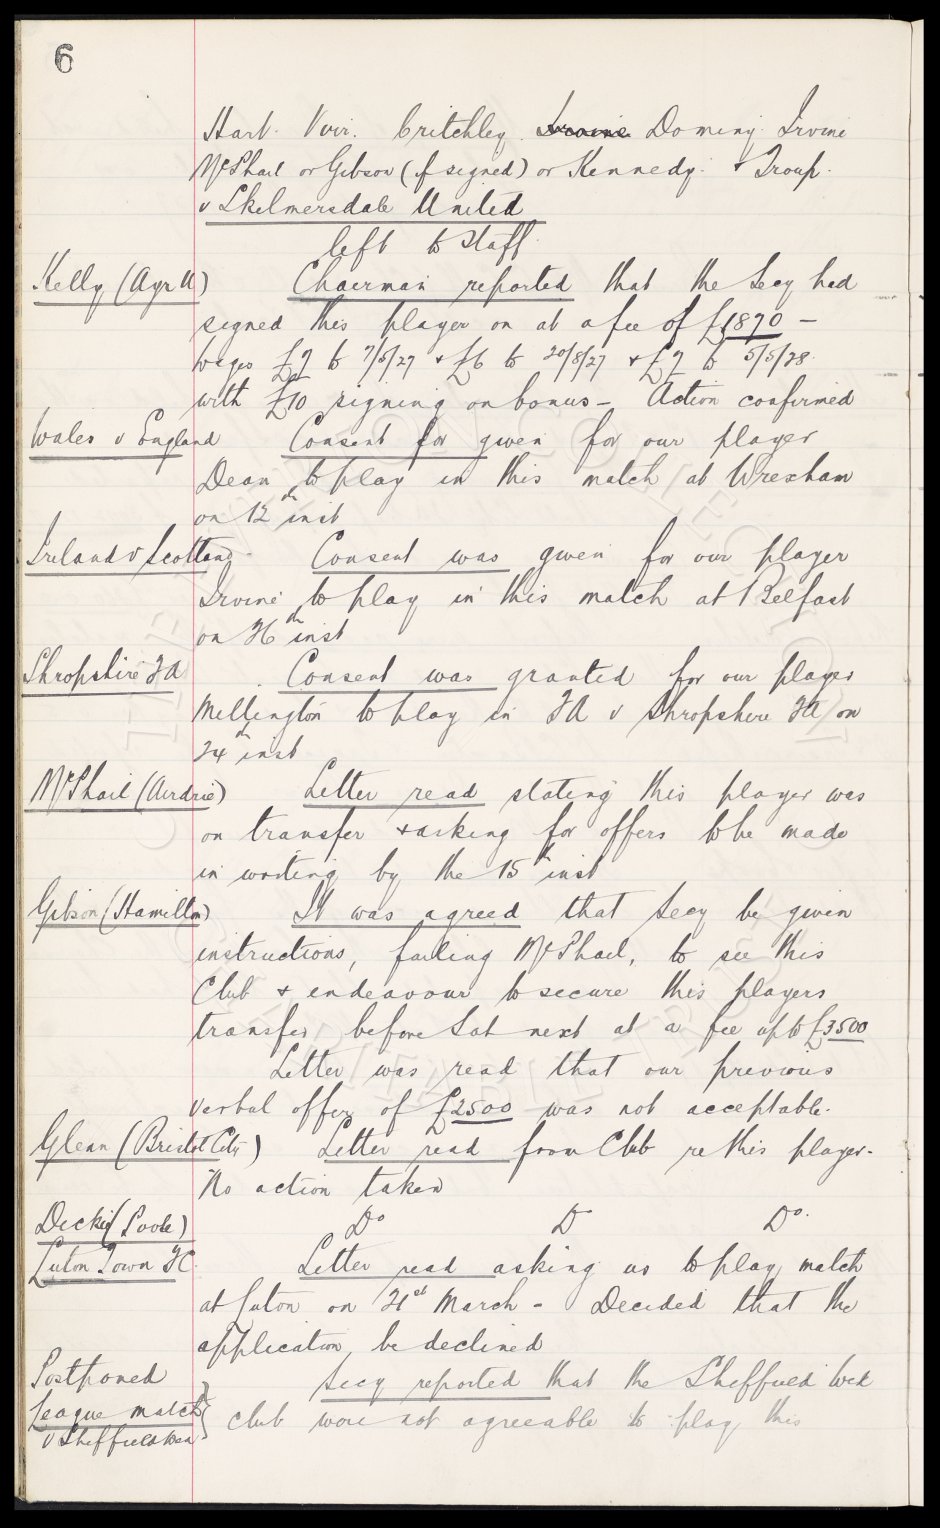 6
Hart. Virr. Critchley. Irvine Dominy. Irvine
McPhail or Gibson (if signed) or Kennedy. & Troup.
v Skelmersdale United
left to Staff.
Kelly (Ayr U) Chairman reported that the Secy had
signed this player on at a fee of £1870 –
wages £7 to 7/5/27 & £6 to 20/8/27 & £7 to 5/5/28.
with £10 signing on bonus – Action confirmed
Wales v England Consent for given for our player
Dean to play in this match at Wrexham
on 12th inst
Ireland v Scotland. Consent was given for our player
Irvine to play in this match at Belfast
on 26th inst
Shropshire FA Consent was granted for our player
Millington to play in FA v Shropshire FA on
24th inst
McPhail (Airdrie) Letter read stating this player was
on transfer & asking for offers to be made
in writing by the 15th inst
Gibson (Hamilton) It was agreed that Secy be given
instructions, failing McPhail, to see this
Club & endeavour to secure this players
transfer before Sat next at a fee up to £3500
Letter was read that our previous
verbal offer of £2500 was not acceptable.
Glenn (Bristol City) Letter read from Club re this player.
No action taken
(Poole) Do Do Do.
Luton Town FC. Letter read asking us to play match
at Luton on 21st March – Decided that the
application be declined
Postponed Secy reported that the Sheffield Wed
League match club were not agreeable to play this
v Sheffield Wed